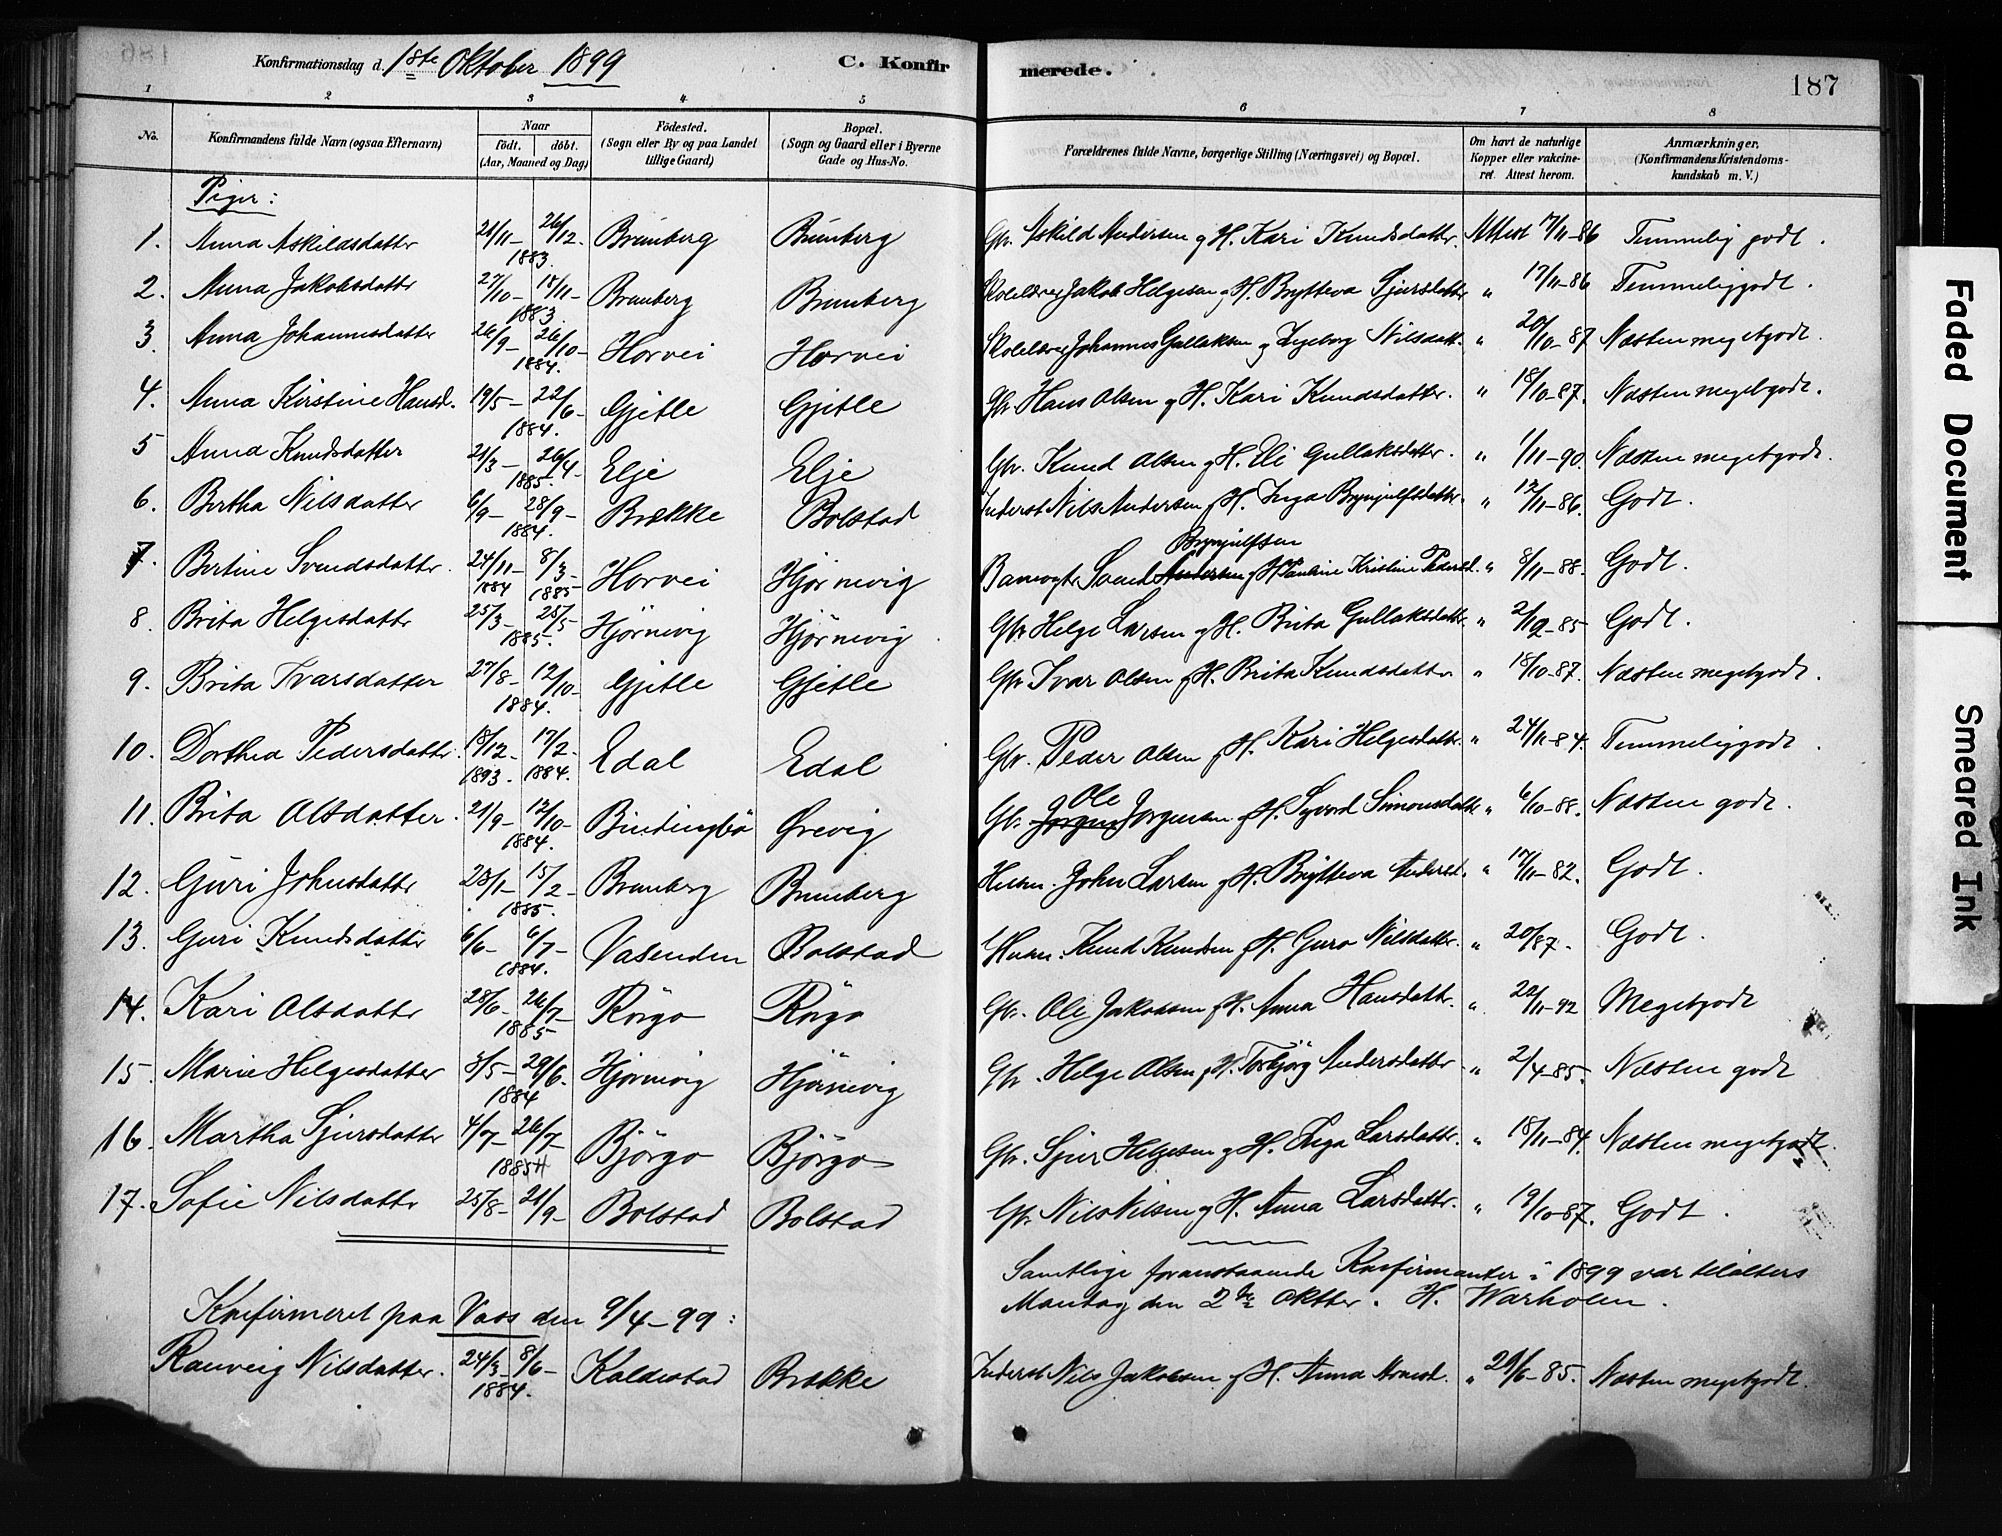 186
Konfirmationsdag d. 1ste Oktober 1899 C. Konfirmerede. 187
1 2 3 4 5 6 7 8
No. Konfirmandens fulde Navn (ogsaa Efternavn) Naar født. døbt. (Aar, Maaned og Dag) Fødested. (Sogn eller By og paa Landet tillige Gaard) Bopæl. (Sogn og Gaard eller i Byerne Gade og Hus-No. Forældrenes fulde Navne, borgerlige Stilling (Næringsvei) og Bopæl. Om havt de naturlige Kopper eller vakcineret. Attest herom. Anmærkninger. (Konfirmandens Kristendomskundskab m. V.)
Piger:
1. Anna Askildsdatter 21/11 - 26/12. 1883. Brunberg Brunberg Gbr. Askild Andersen g H. Kari Knudsdatter. Attest 17/11-86 Temmelig godt.
2. Anna Jakobsdatter 27/10 - 15/11 - 1883. Brunberg Brunberg Skolelærer Jakob Helgesen g H. Brytteva Sjursdatter " 17/11-86 Temmelig godt.
3. Anna Johannesdatter 26/9 - 26/10 - 1884. Horvei Horvei Skolelærer Johannes Gullaksen g Ingeborg Nilsdatt. " 20/10-87 Næsten meget godt.
4. Anna Kirstine Hansd. 19/5 - 22/6 - 1884. Gjetle Gjetle Gbr Hans Olsen g H. Kari Knudsdatter. " 18/10-87. Næsten meget godt.
5 Anna Knudsdatter 21/3 - 26/4 - 1885. Elje Elje Gbr. Knud Olsen g H. Eli Gullaksdatter. " 1/11-90. Næsten meget godt.
6. Bertha Nilsdatter 6/9 - 28/9 - 1884. Brække Bolstad Inderst Nils Andersen g H. Inga Brynjulfsdatter. " 12/11-86. Godt.
7. Bertine Svendsdatter. 24/11 - 1884 8/3 - 1885 Horvei Hjørnevig Banevogter Svend Andersen Brynjulfsen g H Pauline Kristine Pedersd. " 8/11-88. Godt.
8. Brita Helgesdatter 25/3 - 25/5 1885. Hjørnevig Hjørnevig. Gbr Helge Larsen g H. Brita Gullaksdatter. " 2/12-85 Godt.
9. Brita Ivarsdatter 27/8 - 12/10 - 1884. Gjetle Gjetle Gbr Ivar Olsen g H. Brita Knudsdatter " 18/10-87. Næsten meget godt.
10. Dorthea Pedersdatter. 18/12 - 1893. 17/2 - 1884. Edal Edal Gbr. Peder Olsen g H. Kari Helgesdatter. " 24/11-84. Temmelig godt.
11. Brita Olsdatter. 21/9 - 12/10 - 1884. Bindingbø Ørevig Gbr. Jørgen Ole Jørgensen g H. Syvord Simonsdatter " 6/10-88. Næsten godt.
12. Guri Johnsdatter 23/1 - 15/2 - 1885. Brunberg Brunberg Husm. John Larsen g H. Brytteva Andersd. " 17/11-82. Godt.
13. Guri Knudsdatter 6/6 - 6/7 - 1884. Vasenden Bolstad Husm. Knud Knudsen g H. Guro Nilsdatter. " 20/87. Godt.
14. Kari Olsdatter 28/6 - 26/7 1885 Rørgo Rørgo Gbr. Ole Jakobsen g H. Anna Hansdatter. " 22/11-92 Meget godt
15. Marie Helgesdatter 3/5 - 29/6. 1884 Hjørnevig Hjørnevig Gbr. Helge Olsen g H. Torbjørg Andersdatter " 2/4-85. Næsten godt
16. Martha Sjursdatter 4/7 - 26/7 - 1885 Bjørgo Bjørgo Gbr. Sjur Helgesen g H. Inga Larsdatter. " 18/11-84. Næsten meget godt.
17. Sofie Nilsdatter 25/8 - 21/9 - Bolstad Bolstad Gbr. Nils Nilsen g H. Anna Larsdatter. " 19/10-87. Godt.
Samtlige foranstaaende Konfirmanter i 1899 var tilalters
Mandag den 2den Oktber. H. Warholm.
Konfirmeret paa Voss den 9/4-99:
Ranveig Nilsdatter. 24/3 - 8/6 - 1884. Kaldestad Brække Inderst Nils Jakobsen g H. Anna Arnesd. " 29/6-85. Næsten meget godt.
Faded Document
Smeared Ink